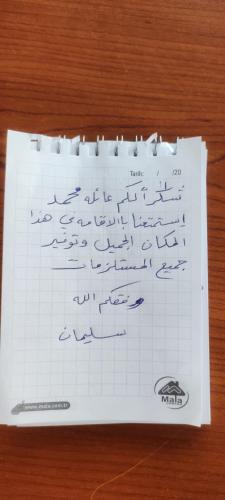 Tarih: / /20
شكراً لكم عائله محمد
إستمتعنا بالاقامه في هذا
المكان الجميل وتوفير
جميع المستلزمات
وفقكم الله
سليمان
Mala
www.mala.com.tr